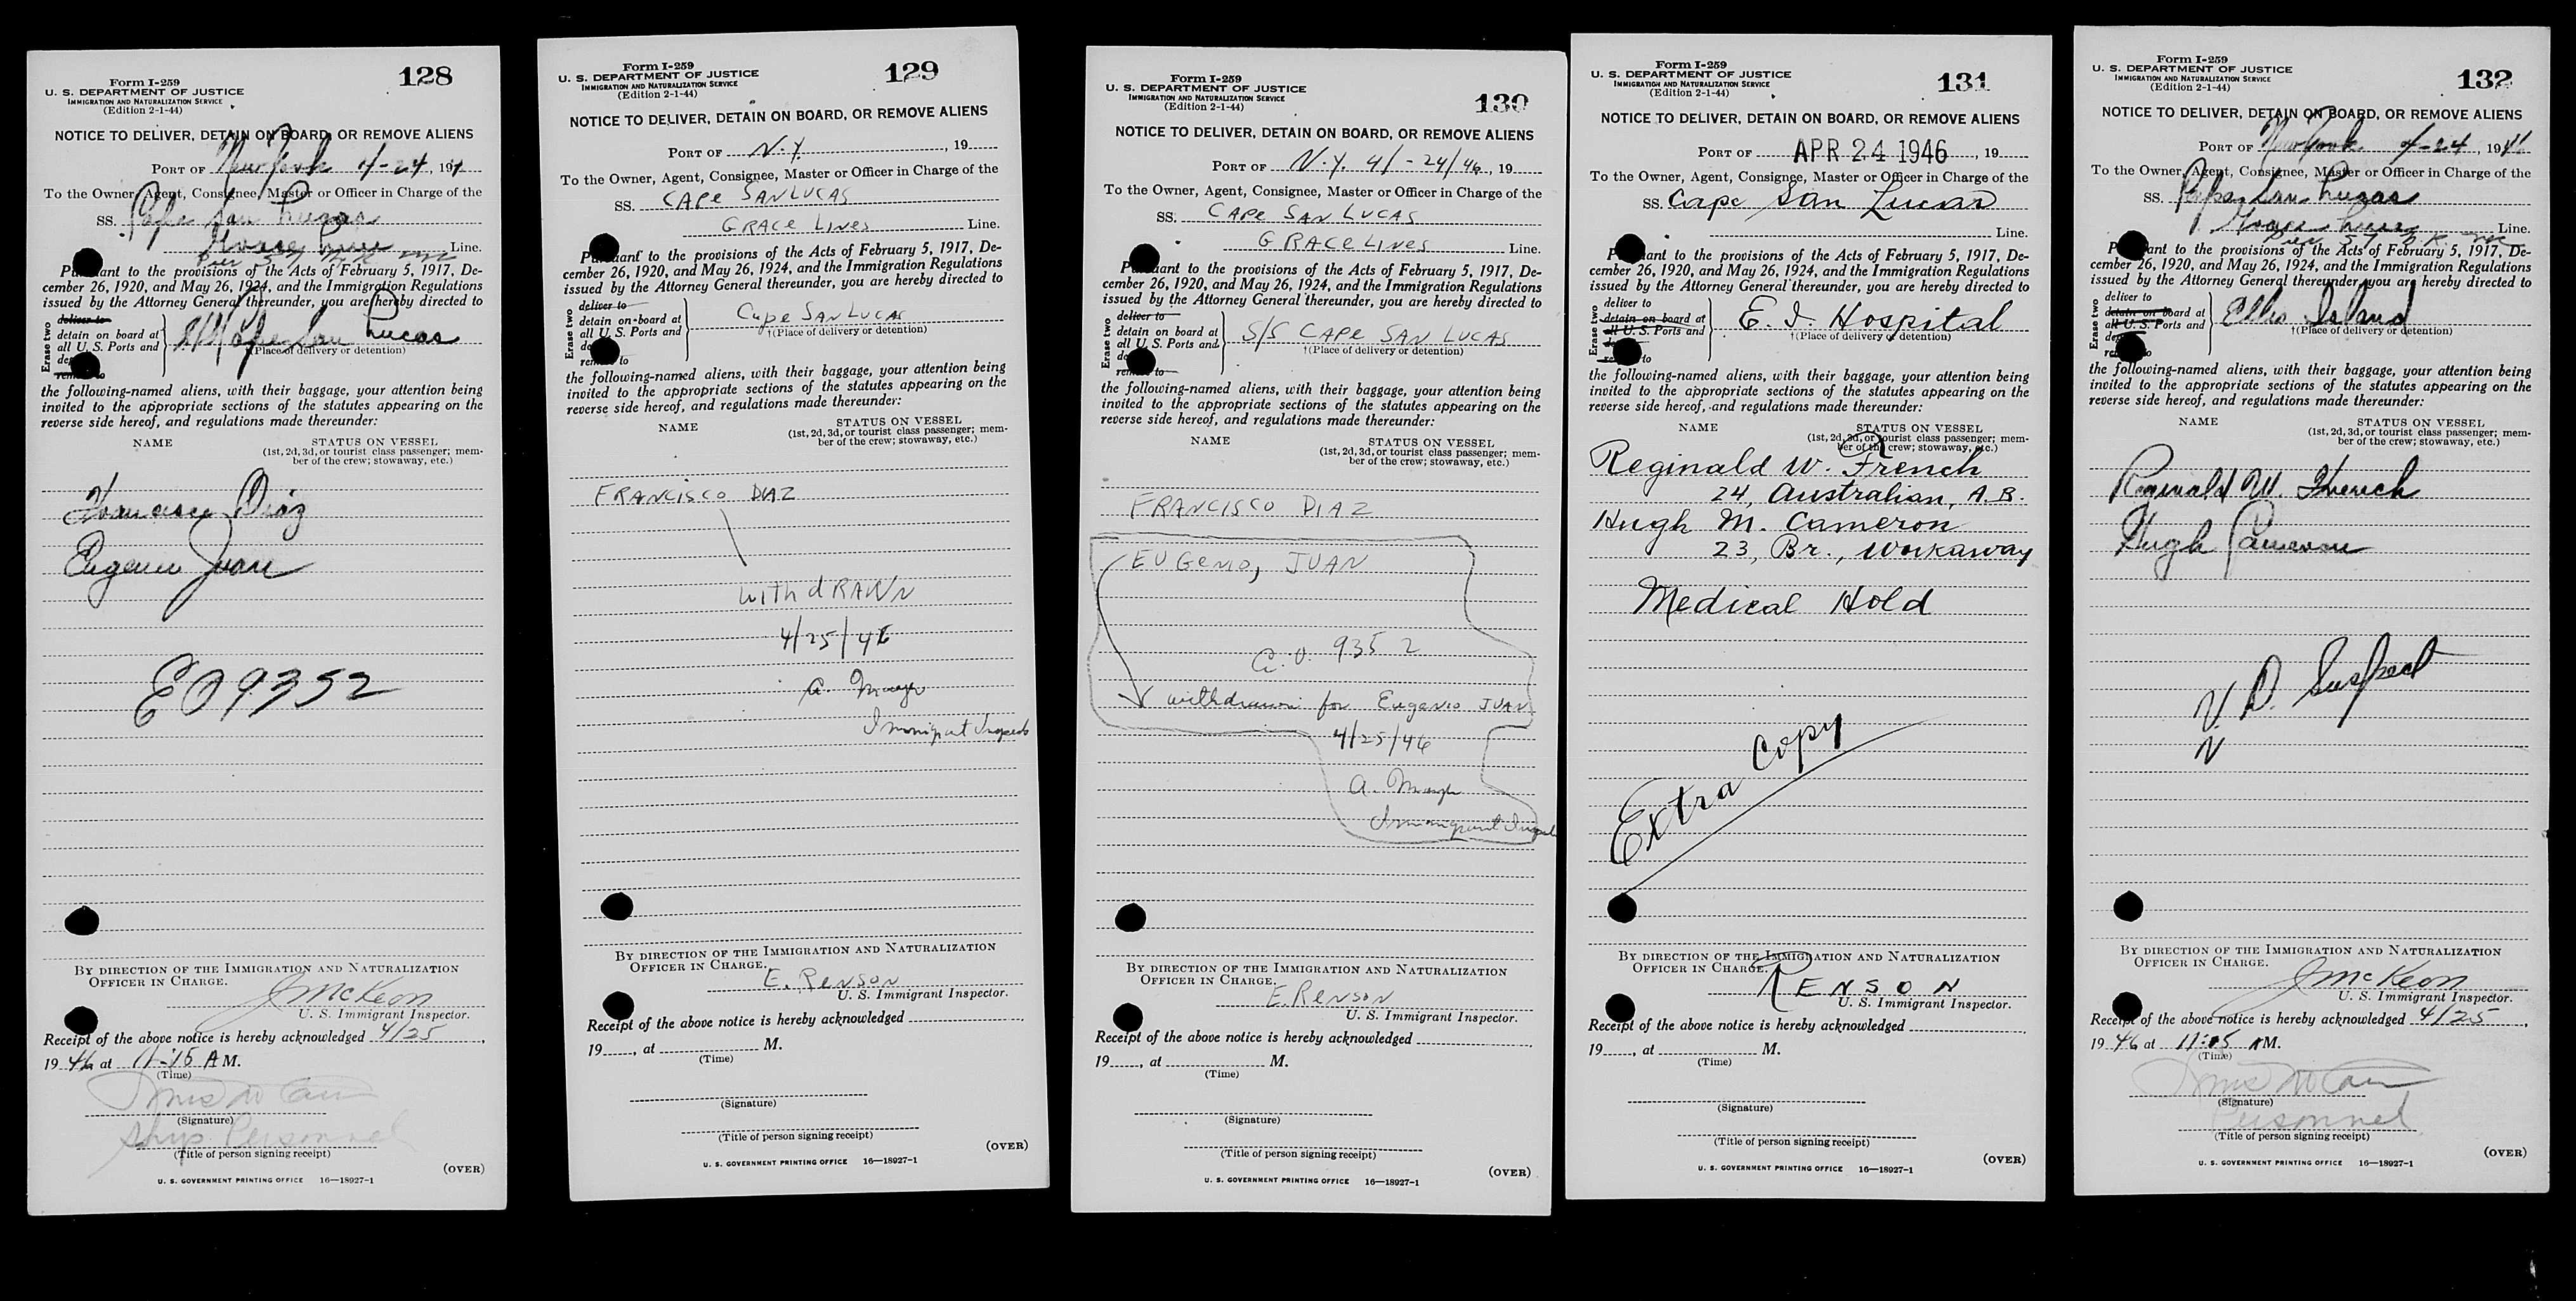 128
Form I-259
U. S. DEPARTMENT OF JUSTICE
IMMIGRATION AND NATURALIZATION SERVICE
(Edition 2-1-44)
NOTICE TO DELIVER, DETAIN ON BOARD, OR REMOVE ALIENS
PORT OF New York 4-24, 19
To the Owner, Agent, Consignee, Master or Officer in Charge of the
SS. Cape San Lucas
Grace Line Line.
Pier 57
Pursuant to the provisions of the Acts of February 5, 1917, De-
cember 26, 1920, and May 26, 1924, and the Immigration Regulations
issued by the Attorney General thereunder, you are hereby directed to
Erase two
deliver to
detain on board at
all U. S. Ports and
remove to
Cape San Lucas
(Place of delivery or detention)
the following-named aliens, with their baggage, your attention being
invited to the appropriate sections of the statutes appearing on the
reverse side hereof, and regulations made thereunder:
NAME
STATUS ON VESSEL
(1st, 2d, 3d, or tourist class passenger; mem-
ber of the crew; stowaway, etc.)
Francisco Diaz
Eugenio Juan
EO 9352
BY DIRECTION OF THE IMMIGRATION AND NATURALIZATION
OFFICER IN CHARGE.
J McKeon
U. S. Immigrant Inspector.
Receipt of the above notice is hereby acknowledged 4/25,
1946 at 11-15 A M.
(Time)
(Signature)
Ships Personnel
(Title of person signing receipt)
(OVER)
U. S. GOVERNMENT PRINTING OFFICE 16—18927-1
129
Form I-259
U. S. DEPARTMENT OF JUSTICE
IMMIGRATION AND NATURALIZATION SERVICE
(Edition 2-1-44)
NOTICE TO DELIVER, DETAIN ON BOARD, OR REMOVE ALIENS
PORT OF N.Y., 19
To the Owner, Agent, Consignee, Master or Officer in Charge of the
SS. CAPE SAN LUCAS
GRACE LINES Line.
Pursuant to the provisions of the Acts of February 5, 1917, De-
cember 26, 1920, and May 26, 1924, and the Immigration Regulations
issued by the Attorney General thereunder, you are hereby directed to
Erase two
deliver to
detain on board at
all U. S. Ports and
remove to
Cape SAN LUCAS
†(Place of delivery or detention)
the following-named aliens, with their baggage, your attention being
invited to the appropriate sections of the statutes appearing on the
reverse side hereof, and regulations made thereunder:
NAME
STATUS ON VESSEL
(1st, 2d, 3d, or tourist class passenger; mem-
ber of the crew; stowaway, etc.)
FRANCISCO DIAZ
withdRAWN
4/25/46
Immigrant Inspector
BY DIRECTION OF THE IMMIGRATION AND NATURALIZATION
OFFICER IN CHARGE.
E. RENSON
U. S. Immigrant Inspector.
Receipt of the above notice is hereby acknowledged
19, at M.
(Time)
(Signature)
(Title of person signing receipt)
(OVER)
U. S. GOVERNMENT PRINTING OFFICE 16—18927-1
130
Form I-259
U. S. DEPARTMENT OF JUSTICE
IMMIGRATION AND NATURALIZATION SERVICE
(Edition 2-1-44)
NOTICE TO DELIVER, DETAIN ON BOARD, OR REMOVE ALIENS
PORT OF N.Y. 4/-24/46, 19
To the Owner, Agent, Consignee, Master or Officer in Charge of the
SS. CAPE SAN LUCAS
GRACE LINES Line.
Pursuant to the provisions of the Acts of February 5, 1917, De-
cember 26, 1920, and May 26, 1924, and the Immigration Regulations
issued by the Attorney General thereunder, you are hereby directed to
Erase two
deliver to
detain on board at
all U. S. Ports and
remove to
S/S CAPE SAN LUCAS
†(Place of delivery or detention)
the following-named aliens, with their baggage, your attention being
invited to the appropriate sections of the statutes appearing on the
reverse side hereof, and regulations made thereunder:
NAME
STATUS ON VESSEL
(1st, 2d, 3d, or tourist class passenger; mem-
ber of the crew; stowaway, etc.)
FRANCISCO DIAZ
EUGENIO, JUAN
9352
withdrawn for Eugenio JUAN
4/25/46
Immigrant Inspector
BY DIRECTION OF THE IMMIGRATION AND NATURALIZATION
OFFICER IN CHARGE.
E. RENSON
U. S. Immigrant Inspector.
Receipt of the above notice is hereby acknowledged
19, at M.
(Time)
(Signature)
(Title of person signing receipt)
(OVER)
U. S. GOVERNMENT PRINTING OFFICE 16—18927-1
131
Form I-259
U. S. DEPARTMENT OF JUSTICE
IMMIGRATION AND NATURALIZATION SERVICE
(Edition 2-1-44)
NOTICE TO DELIVER, DETAIN ON BOARD, OR REMOVE ALIENS
PORT OF APR 24 1946, 19
To the Owner, Agent, Consignee, Master or Officer in Charge of the
SS. Cape San Lucas
Line.
Pursuant to the provisions of the Acts of February 5, 1917, De-
cember 26, 1920, and May 26, 1924, and the Immigration Regulations
issued by the Attorney General thereunder, you are hereby directed to
Erase two
deliver to
detain on board at
all U. S. Ports and
remove to
E. I. Hospital
†(Place of delivery or detention)
the following-named aliens, with their baggage, your attention being
invited to the appropriate sections of the statutes appearing on the
reverse side hereof, and regulations made thereunder:
NAME
STATUS ON VESSEL
(1st, 2d, 3d, or tourist class passenger; mem-
ber of the crew; stowaway, etc.)
Reginald W. French
24, Australian, A.B.
Hugh M. Cameron
23, Br., Workaway
Medical Hold
Extra Copy
BY DIRECTION OF THE IMMIGRATION AND NATURALIZATION
OFFICER IN CHARGE.
RENSON
U. S. Immigrant Inspector.
Receipt of the above notice is hereby acknowledged
19, at M.
(Time)
(Signature)
(Title of person signing receipt)
(OVER)
U. S. GOVERNMENT PRINTING OFFICE 16—18927-1
132
Form I-259
U. S. DEPARTMENT OF JUSTICE
IMMIGRATION AND NATURALIZATION SERVICE
(Edition 2-1-44)
NOTICE TO DELIVER, DETAIN ON BOARD, OR REMOVE ALIENS
PORT OF New York 4-24, 1946
To the Owner, Agent, Consignee, Master or Officer in Charge of the
SS. Cape San Lucas
Grace Lines Line.
Pier 57
Pursuant to the provisions of the Acts of February 5, 1917, De-
cember 26, 1920, and May 26, 1924, and the Immigration Regulations
issued by the Attorney General thereunder, you are hereby directed to
Erase two
deliver to
detain on board at
all U. S. Ports and
remove to
Ellis Island
†(Place of delivery or detention)
the following-named aliens, with their baggage, your attention being
invited to the appropriate sections of the statutes appearing on the
reverse side hereof, and regulations made thereunder:
NAME
STATUS ON VESSEL
(1st, 2d, 3d, or tourist class passenger; mem-
ber of the crew; stowaway, etc.)
Reginald W. French
Hugh Cameron
V. D. Suspect
BY DIRECTION OF THE IMMIGRATION AND NATURALIZATION
OFFICER IN CHARGE.
J McKeon
U. S. Immigrant Inspector.
Receipt of the above notice is hereby acknowledged 4/25,
1946 at 11:15 AM.
(Time)
(Signature)
Personnel
(Title of person signing receipt)
(OVER)
U. S. GOVERNMENT PRINTING OFFICE 16—18927-1